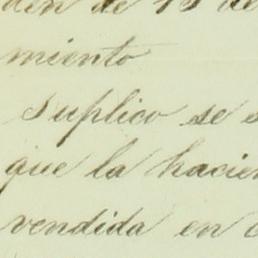 den de 13 de
miento
Suplico se s
que la hacien
vendida en c